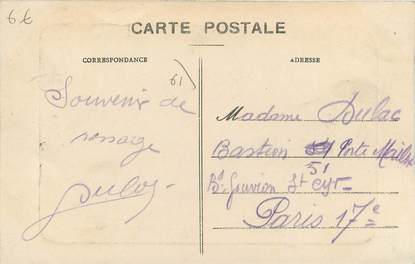 6€
CARTE POSTALE
CORRESPONDANCE
ADRESSE
61)
Souvenir de
Dulac
Madame Dulac
Bastion 51 Porte
Bd Gouvion St Cyr
Paris 17e